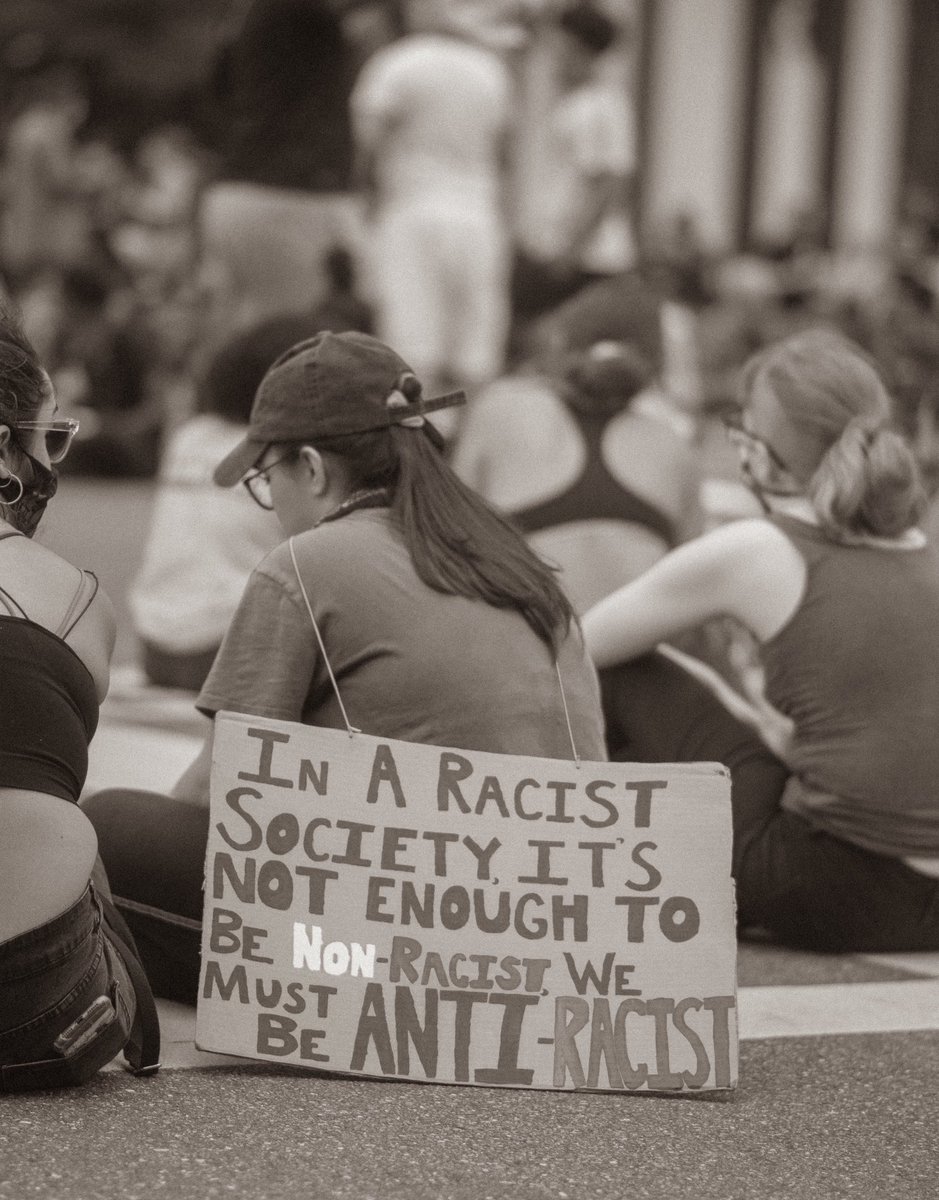 IN A RACIST
SOCIETY, IT'S
NOT ENOUGH TO
BE NON-RACIST, WE
MUST BE ANTI-RACIST